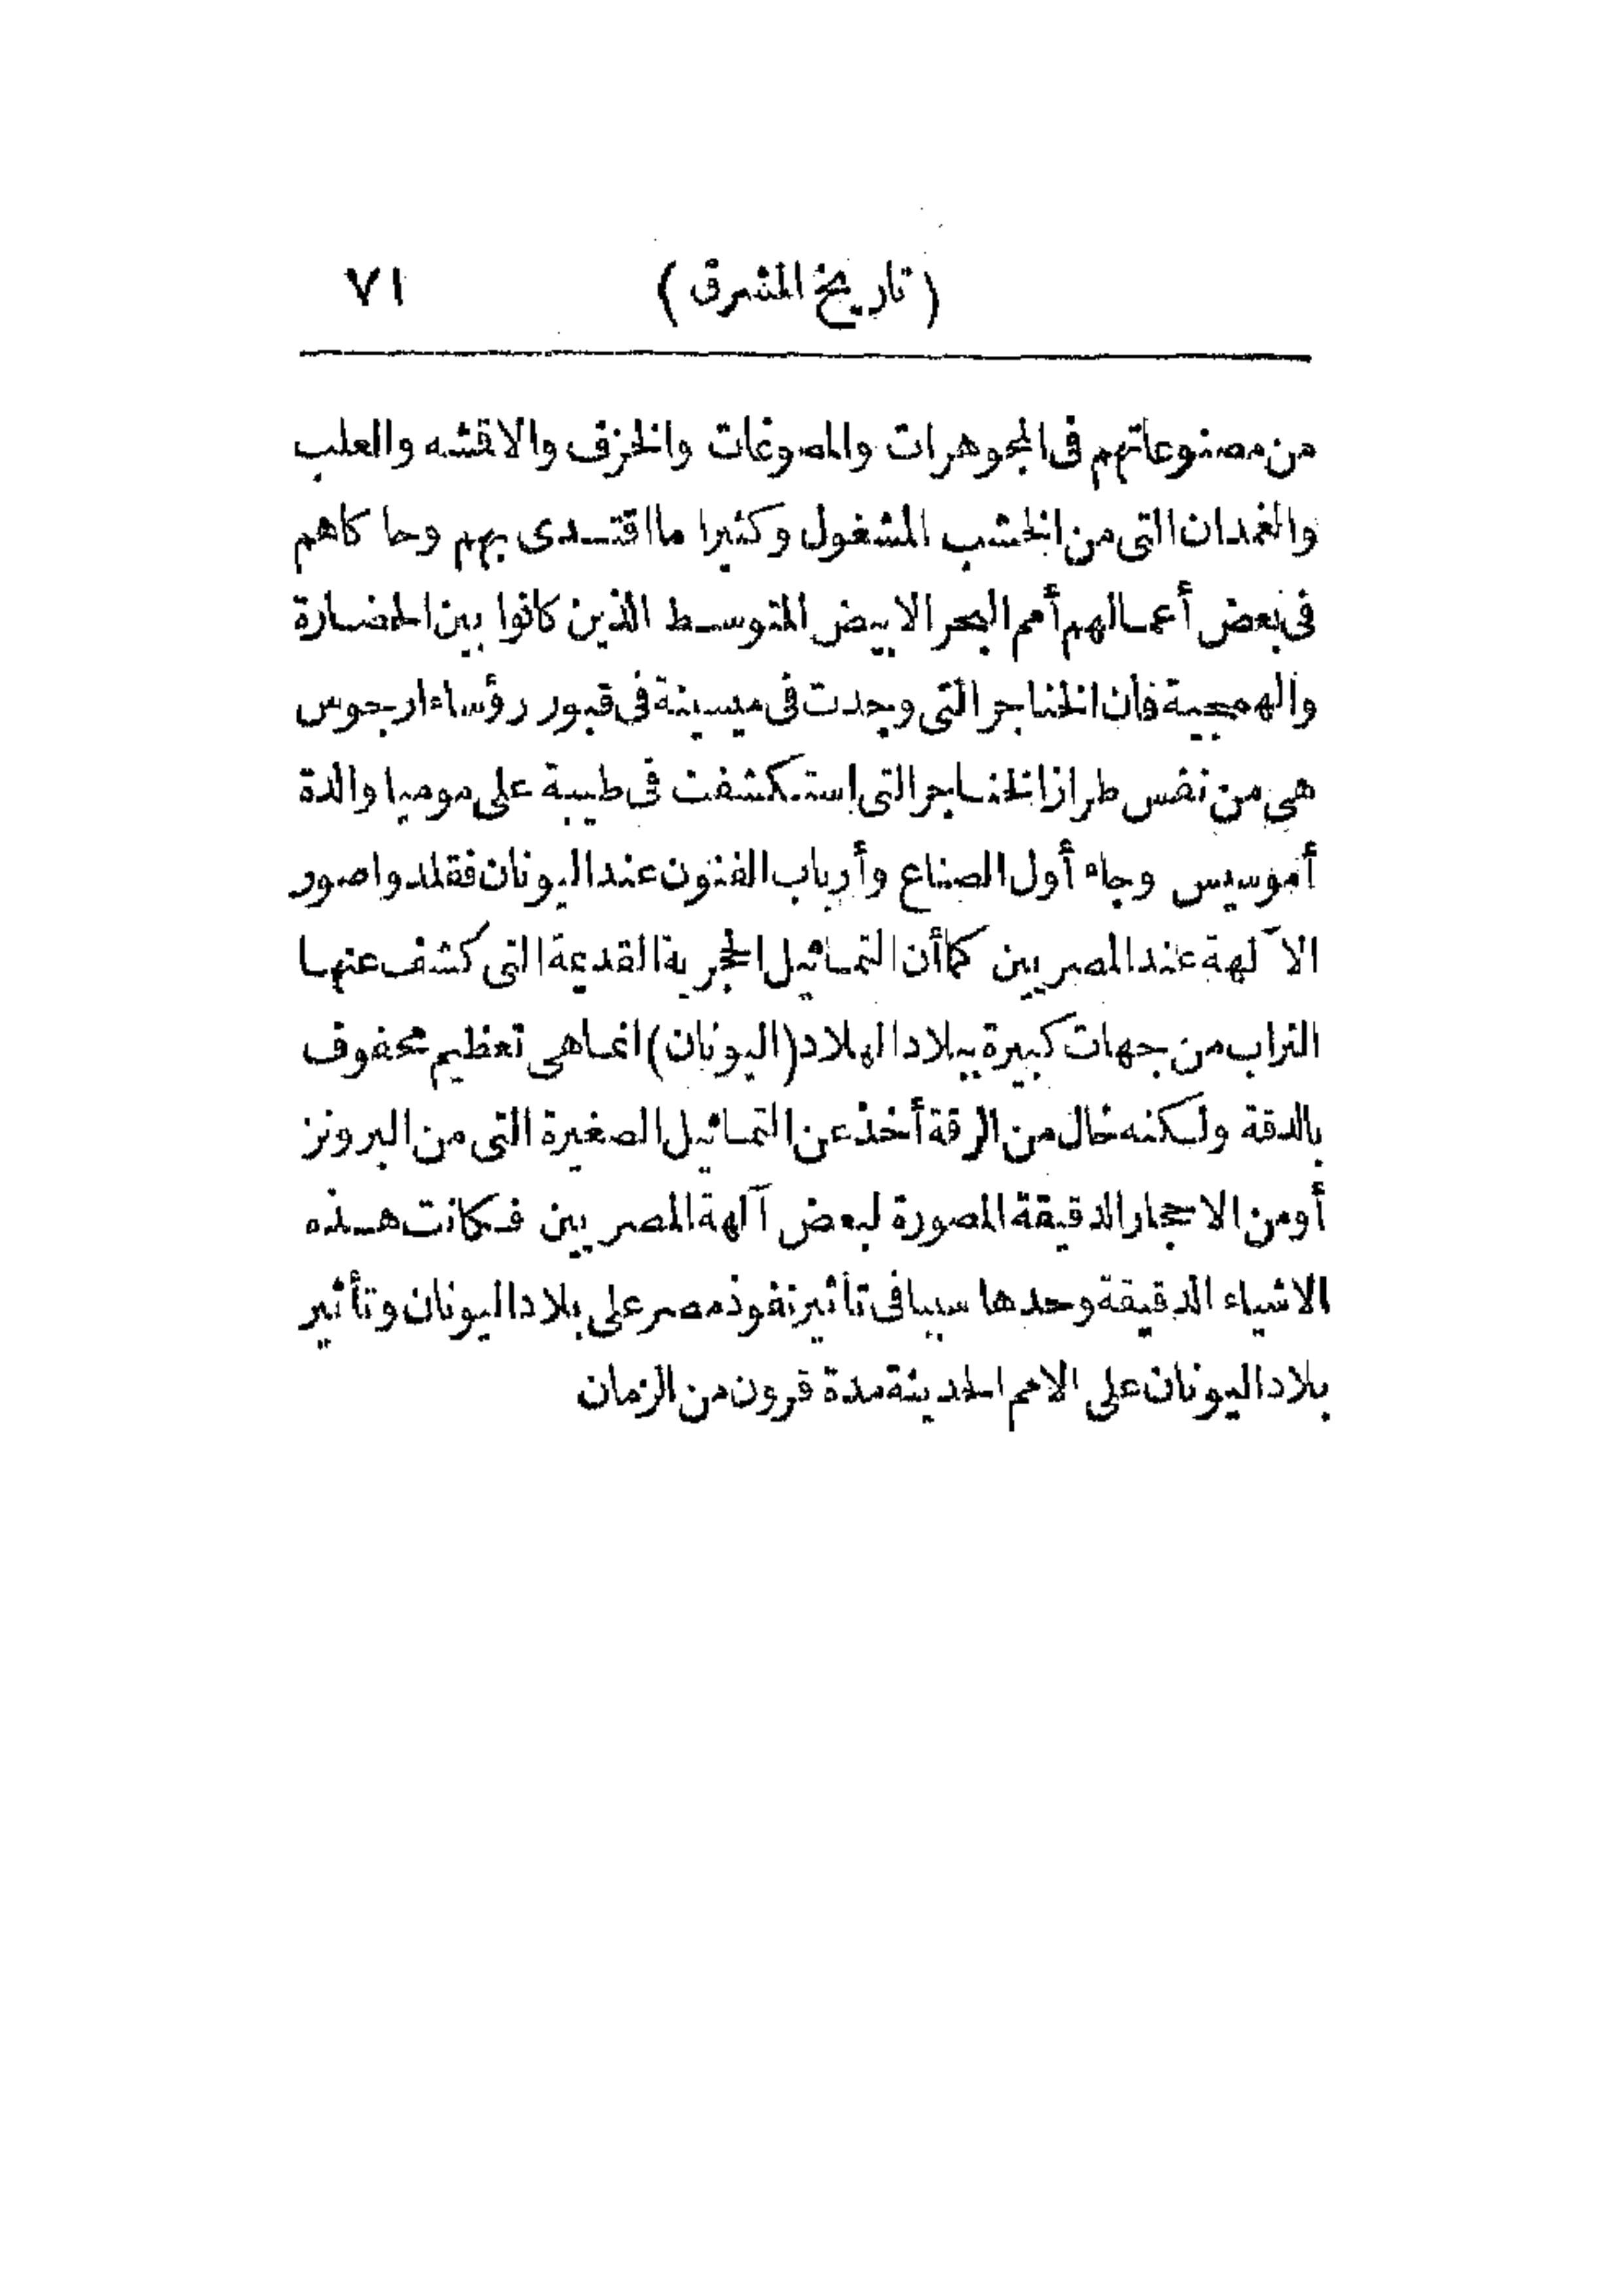 (تاريخ المشرق) ٧١
من مصنوعاتهم فى المجوهرات والمصوغات والخزف والاقشه والعلب
والغمدان التى من الخشب المشغول وكثيرا ما اقتدى بهم وحا كاهم
فى بعض أعمالهم أمم البحر الابيض المتوسط الذين كانوا بين الحضارة
والهمجية فان الخناجر التى وجدت فى ميسينة فى قبور رؤساء ارجوس
هى من نفس طراز الخناجر التى استكشفت فى طيبة على موميا والدة
أموسيس وجاء أول الصناع وأرباب الفنون عند اليونان فقلدوا صور
الآلهة عند المصريين كما أن التماثيل الحجرية القديمة التى كشف عنها
التراب من جهات كبيرة ببلاد الهلاد (اليونان) انما هى تعظيم محفوف
بالدقة ولكنه خال من الرقة أخذ عن التماثيل الصغيرة التى من البرونز
أو من الاحجار الدقيقة المصورة لبعض آلهة المصريين فكانت هذه
الاشياء الدقيقة وحدها سببا فى تأثير نفوذ مصر على بلاد اليونان وتأثير
بلاد اليونان على الامم الحديثة مدة قرون من الزمان